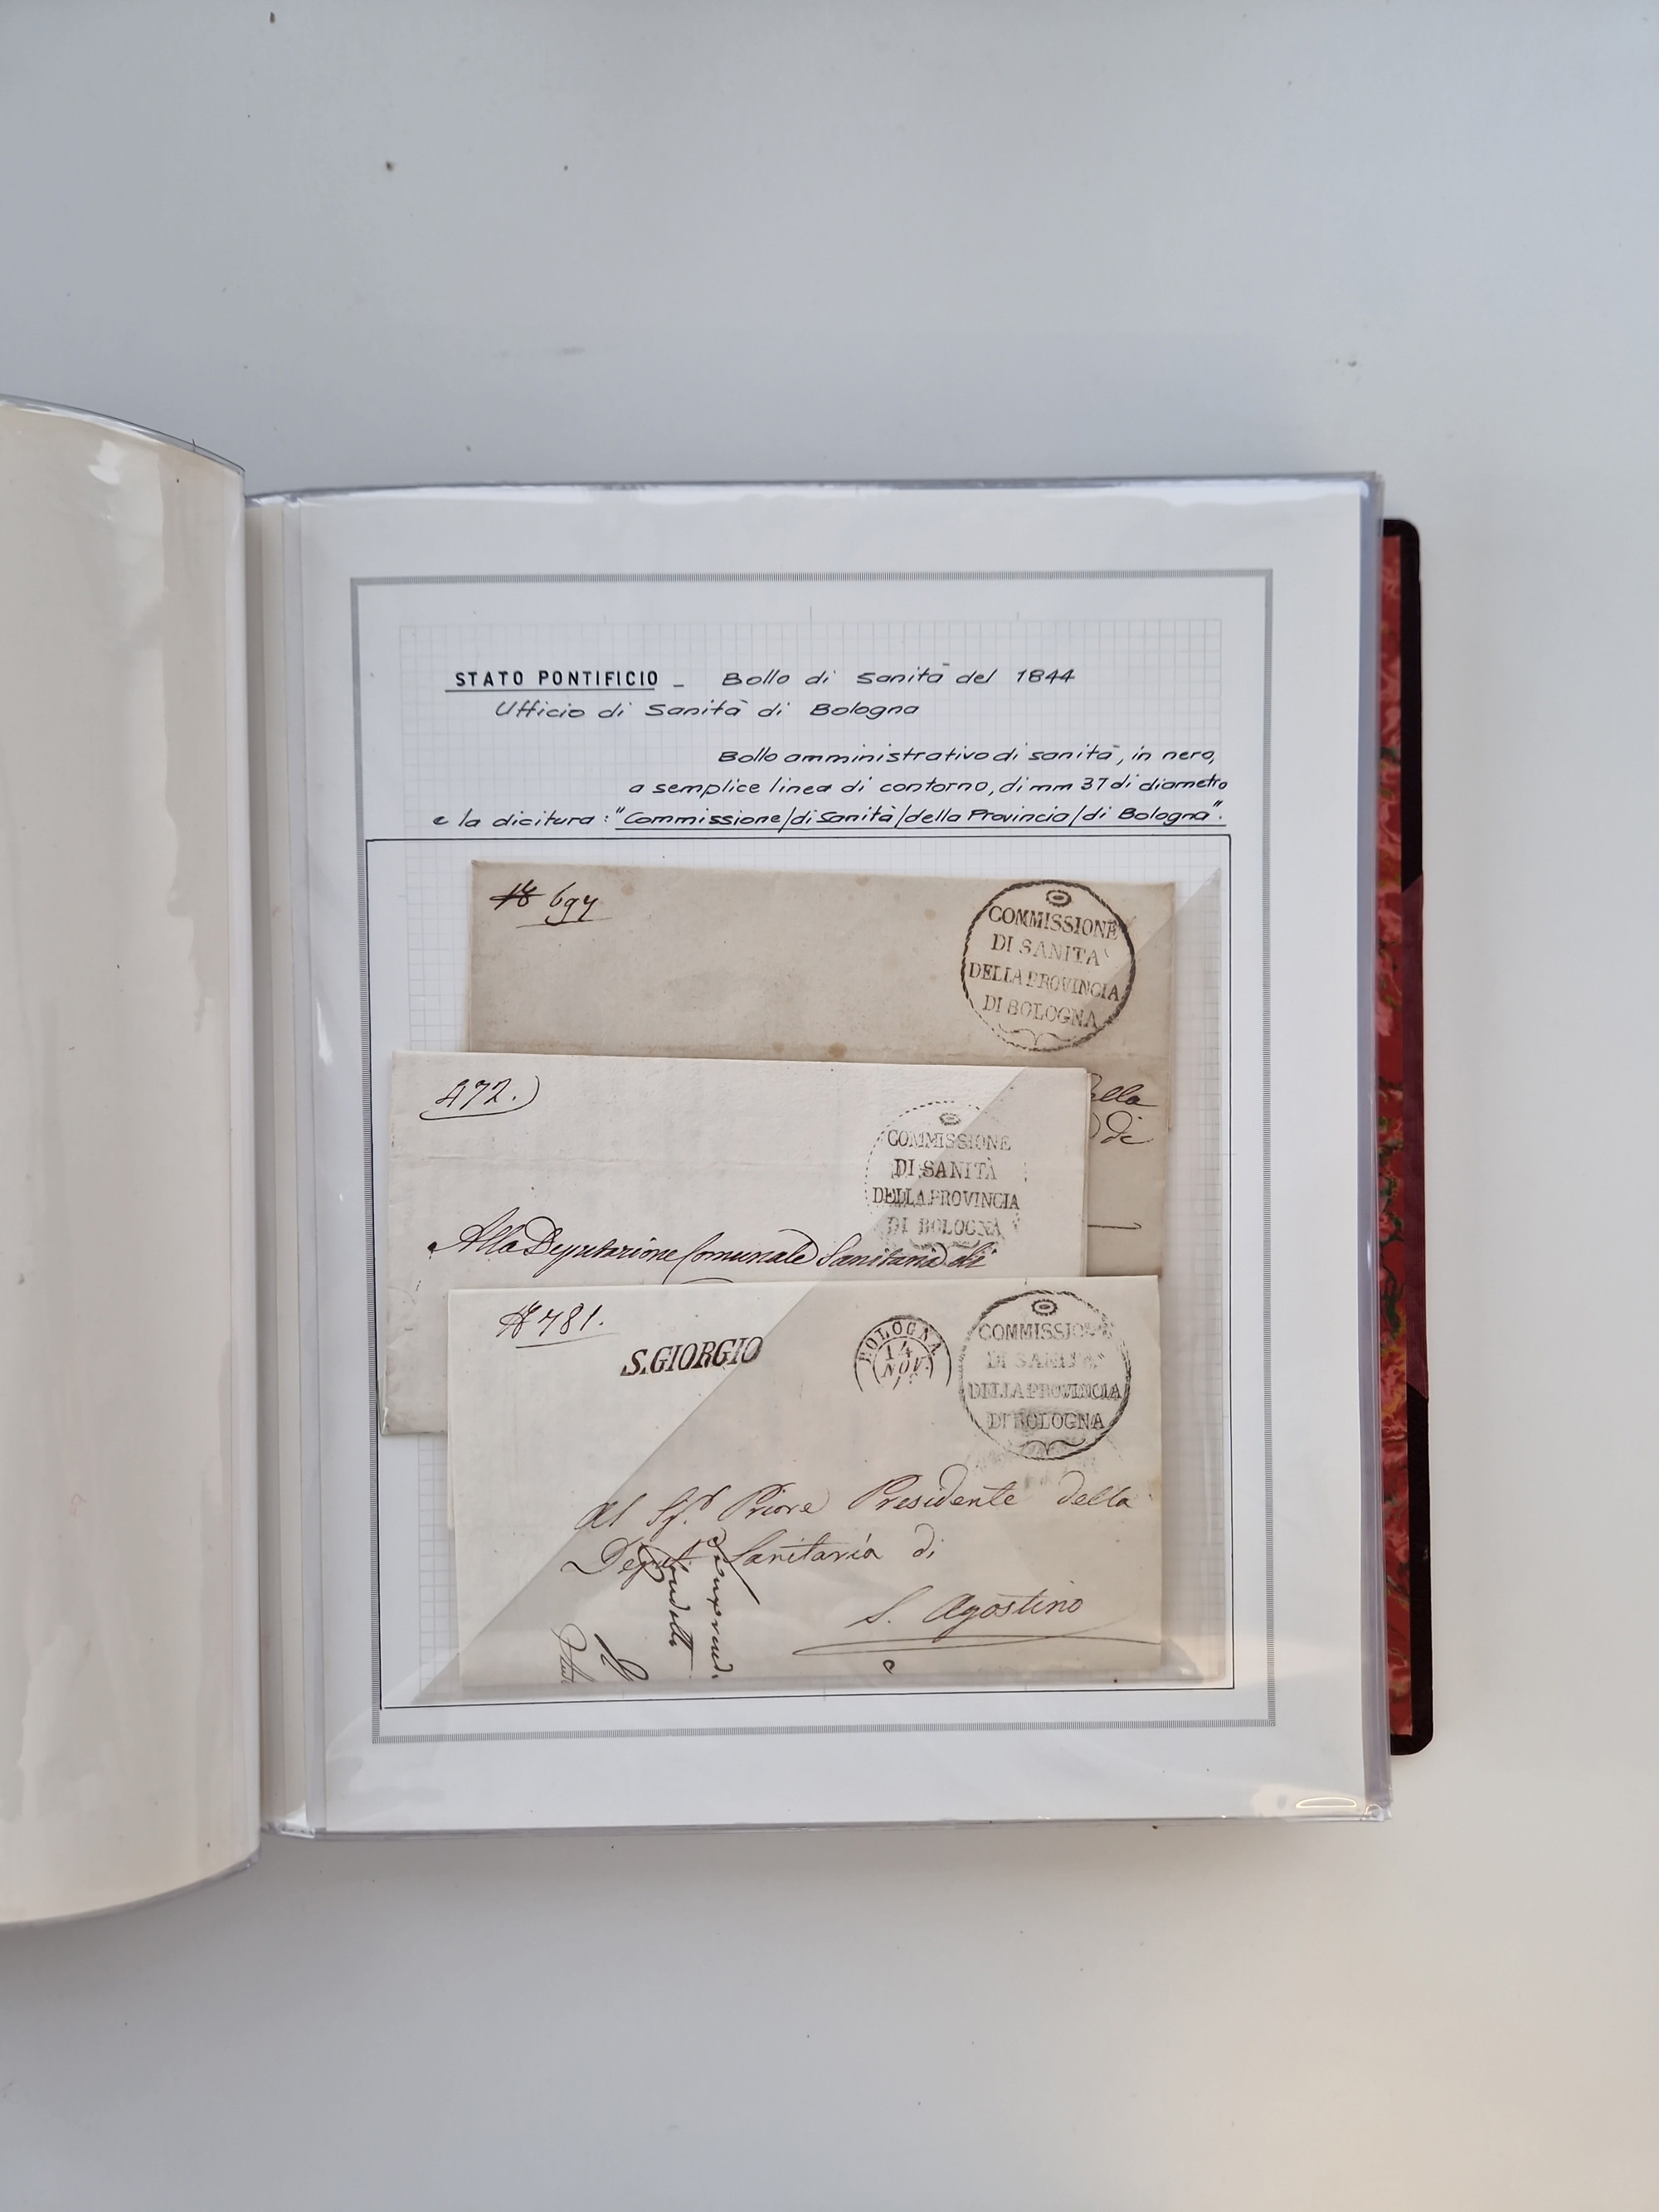 STATO PONTIFICIO - Bollo di Sanità del 1844
Ufficio di Sanità di Bologna
Bollo amministrativo di sanità, in nero,
a semplice linea di contorno, di mm 37 di diametro
e la dicitura: "Commissione/di Sanità/della Provincia/di Bologna".
COMMISSIONE
DI SANITA'
DELLA PROVINCIA
DI BOLOGNA
472.
COMMISSIONE
DI SANITÀ
DELLA PROVINCIA
DI BOLOGNA
di
Alla Deputazione Comunale Sanitaria di
781.
S. GIORGIO
BOLOGNA
14
NOV.
COMMISSIONE
DI SANITA'
DELLA PROVINCIA
DI BOLOGNA
Al Sr. Priore Presidente della
Deput. Sanitaria di
S. Agostino